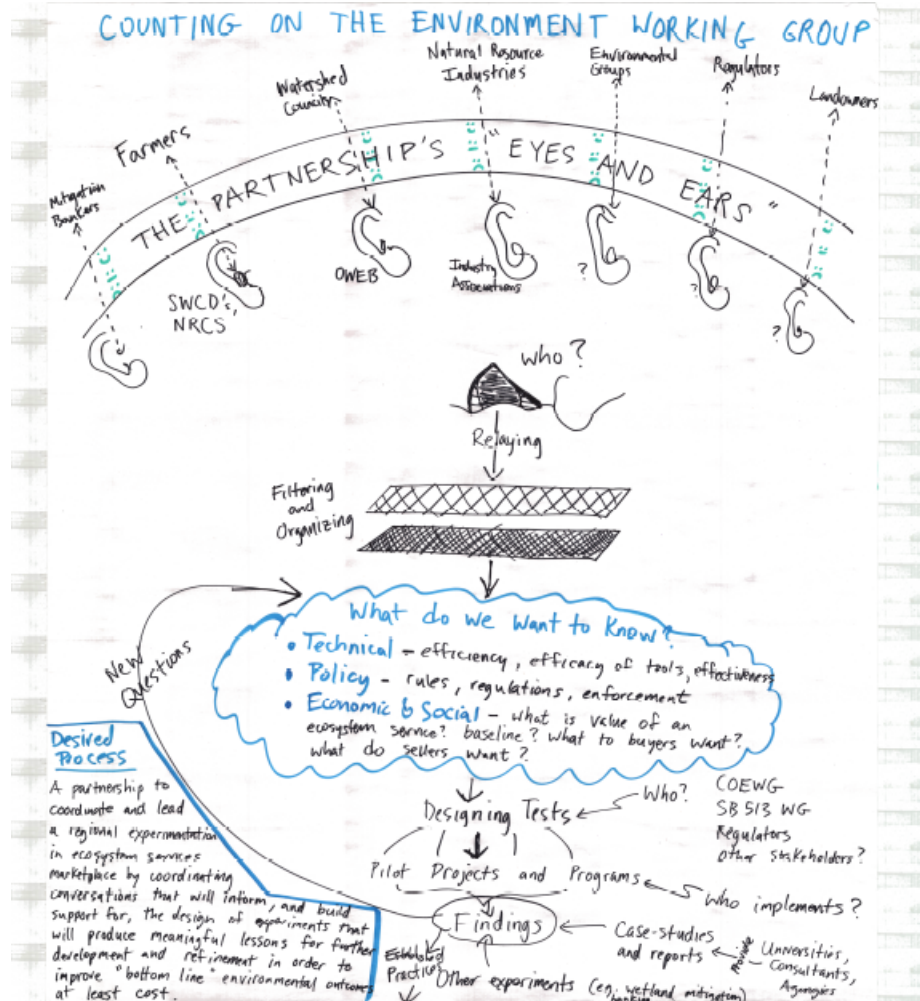 COUNTING ON THE ENVIRONMENT WORKING GROUP
Mitigation
Bankers
Farmers
Watershed
Natural Resource
Industries
Environmental
Groups
Regulators
Landowners
THE PARTNERSHIP'S "EYES AND EARS"
SWCD's,
NRCS
OWEB
Industry
Associations
?
?
?
Who?
Relaying
Filtering
and
Organizing
What do we want to know?
• Technical – efficiency, efficacy of tools, effectiveness
• Policy – rules, regulations, enforcement
• Economic & Social – what is value of an
ecosystem service? baseline? what to buyers want?
what do sellers want?
New
Questions
Desired
Process
A partnership to
coordinate and lead
a regional experimentation
in ecosystem services
marketplace by coordinating
conversations that will inform, and build
support for, the design of experiments that
will produce meaningful lessons for further
development and refinement in order to
improve "bottom line" environmental outcomes
at least cost.
Designing Tests
Who?
COEWG
SB 513 WG
Regulators
other stakeholders?
Pilot Projects and Programs
Who implements?
Findings
Case-studies
and reports
Provide
Universities,
Consultants,
Agencies
Established
Practices
Other experiments (eg. wetland mitigation)